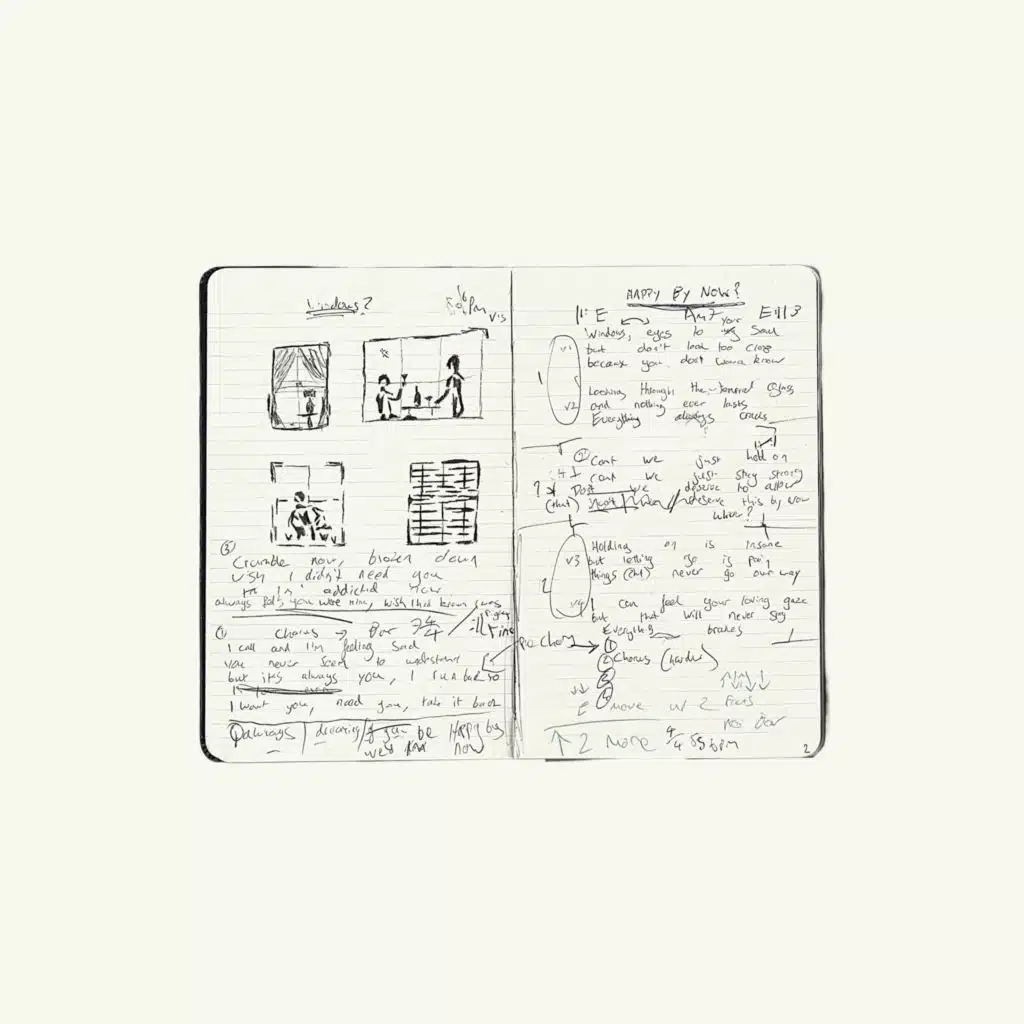 Windows?
V1s
③
Crumble now, broken down
wish I didn't need you
I'm addicted now
always felt you were mine, wish I had known
① Chorus → For 7/4 4/4
I call and I'm feeling sad
you never seem to understand
but it's always you, I run back so
I want you, need you, take it back
always | dreaming / if you be Happy by
we'd now
HAPPY BY NOW?
||: E Am7 E :|| 3
your
Windows, eyes to soul
v1 but don't look too close
because you don't wanna know
1
Looking through the Glass
v2 and nothing ever lasts
Everything always cracks
① Can't we just hold on
can't we just stay strong
? Don't we deserve to allow
(that) deserve this by now
where?
Holding on is insane
v3 but letting go is pain
things (that) never go our way
2
v4 I can feel your loving gaze
but that will never stay
Everything brakes
Pre Chorus → ①
② Chorus (harder)
E move w/ 2
↑ 2 More 4/4 85 bpm
2